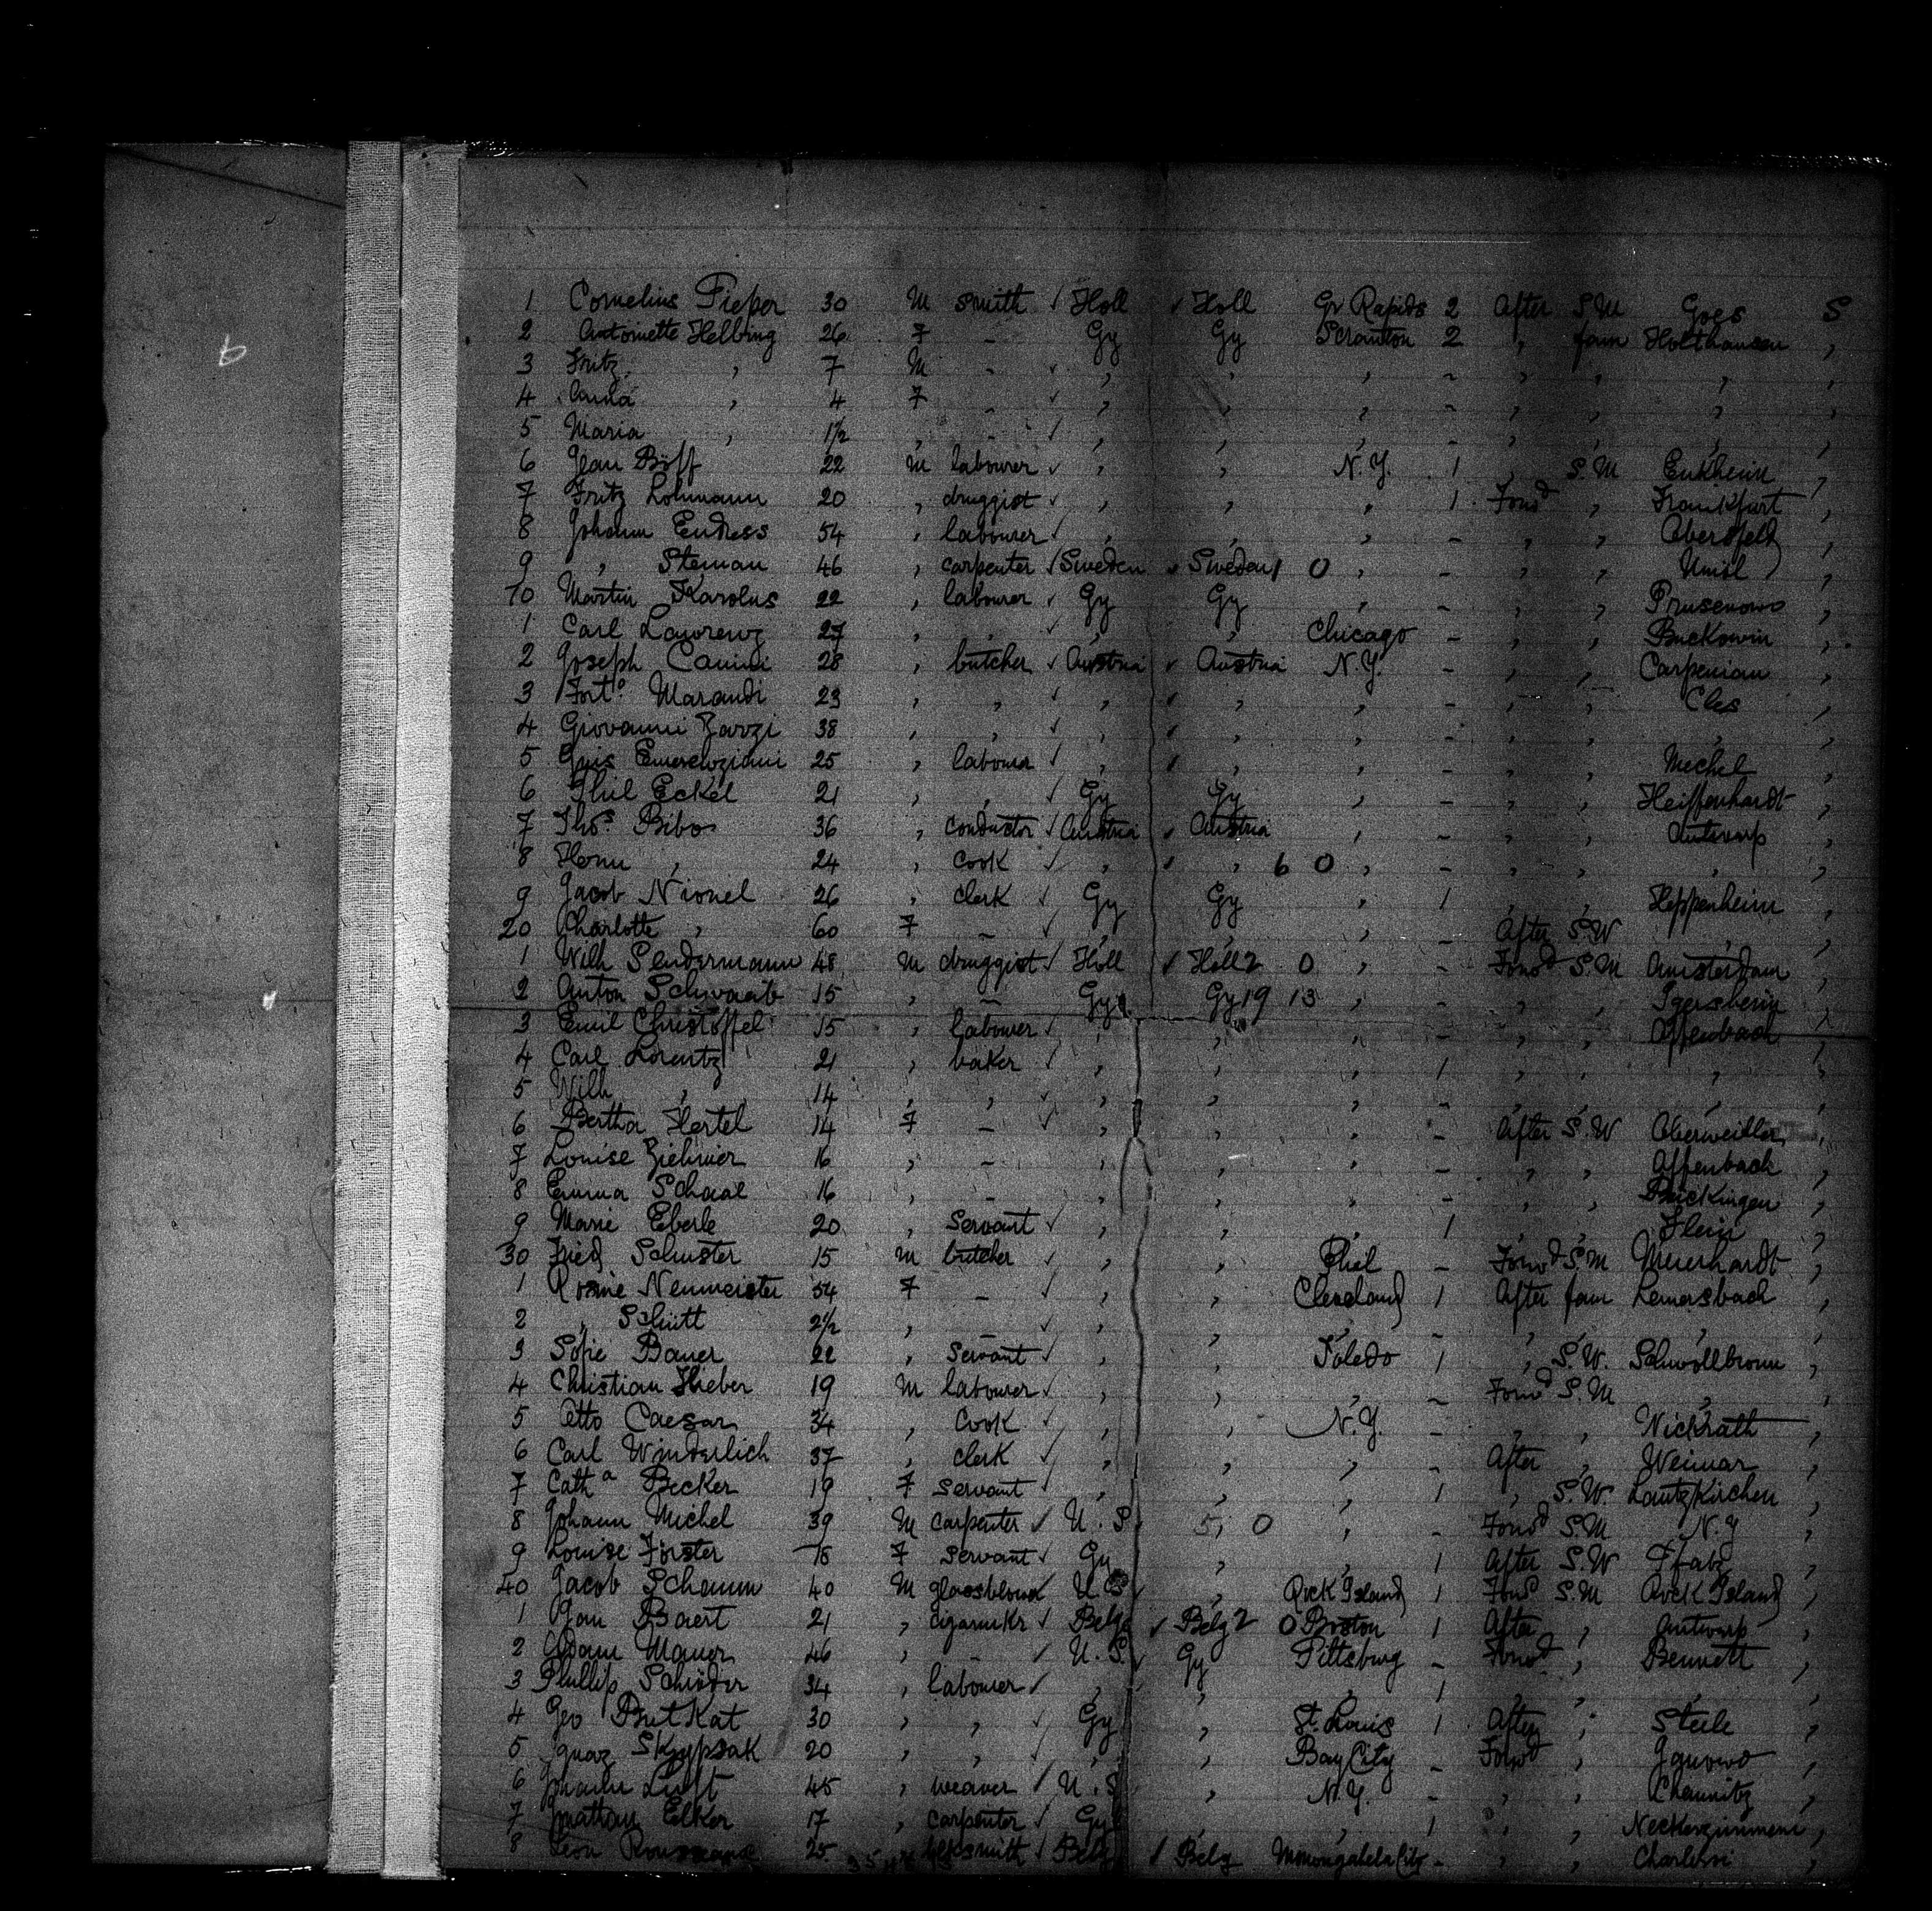 9
1 Cornelius Pieper 30 M smith ✓ Holl ✓ Holl Gr Rapids 2 After S.M Goes S
2 Antoinette Helbring 26 F - Gy Gy Scranton 2 , fam Holthausen ,
3 Fritz , 7 M - ✓ , , , - , , , ,
4 , 4 F - ✓ , , , - , , , ,
5 Maria , 1½ , - ✓ , , , - , , , ,
6 Jean Böff 22 M labourer ✓ , , N.Y. 1 , S.M Enkheim ,
7 Fritz Lohmann 20 , druggist ✓ , , , 1 Forwd , Frankfurt ,
8 Johann Endress 54 , labourer ✓ , , , - , , ,
9 , Steman 46 , carpenter ✓ Sweden ✓ Sweden 1 0 , - , , ,
10 Martin Karolus 22 , labourer ✓ Gy Gy , - , , Prusenowo ,
1 Carl Lawrenz 27 , , ✓ , , Chicago - , , Buckowin ,
2 Joseph 28 , butcher ✓ Austria ✓ Austria N.Y. - , , ,
3 Forto Marandi 23 , , ✓ , ✓ , , - , , Cles ,
4 Giovanni Zarzi 38 , , ✓ , ✓ , , - , , , ,
5 25 , labourer ✓ , ✓ , , - , , Mechel ,
6 Phil Eckel 21 , , ✓ Gy Gy , - , , Heiffenhardt ,
7 Thos Bibo 36 , conductor ✓ Austria ✓ Austria , - , , Antwerp ,
8 , 24 , cook ✓ , ✓ , 6 0 , - , , , ,
9 Jacob 26 , clerk ✓ Gy Gy , 1 , , Heppenheim ,
20 Charlotte , 60 F - ✓ , , , - After S.W , ,
1 Wilh Sendermann 48 M druggist ✓ Holl ✓ Holl 2 0 , - Forwd S.M Amsterdam ,
2 Anton Schwaab 15 , - Gy Gy 19 13 , - , , Igersheim ,
3 Emil Christoffel 15 , labourer ✓ , , , - , , Offenbach ,
4 Carl Lorentz 21 , baker ✓ , , , 1 , , , ,
5 Wilh , 14 , , ✓ , , , - , , , ,
6 Bertha Hertel 14 F - ✓ , , , - After S.W Oberweiller ,
7 Louise Ziehmer 16 , - , , , - , , Offenbach ,
8 Emma Schaal 16 , - , , , - , , ,
9 Marie Eberle 20 , servant ✓ , , , 1 , , Flein ,
30 Fried Schuster 15 M butcher ✓ , , Phil - Forwd S.M Meierhardt ,
1 Rosine Neumeister 54 F - ✓ , , Cleveland 1 After fam Lemersbach ,
2 , Schütt 2½ , - ✓ , , , - , , , ,
3 Sofie Bauer 22 , servant ✓ , , Toledo 1 , S.W. Schwollbronn ,
4 Christian Hieber 19 M labourer ✓ , , , - Forwd S.M , ,
5 Otto Caesar 34 , cook ✓ , , N.Y. - , , Wickrath ,
6 Carl Winderlich 37 , clerk ✓ , , , - After , Weimar ,
7 Catha Becker 19 F servant ✓ , , , 1 , S.W. Lautzkirchen ,
8 Johann Michel 39 M carpenter ✓ U.S. 5 0 , - Forwd S.M N.Y ,
9 Louise Förster 18 F servant ✓ Gy , , 1 After S.W Pfalz ,
40 Jacob Schamm 40 M glassblower U.S. , Rock Island 1 Forwd S.M Rock Island ,
1 Jan Baert 21 , cigarmkr ✓ Belg ✓ Belg 2 0 Boston 1 After , Antwerp ,
2 Adam Mauer 46 , - ✓ U.S. Gy Pittsburg - Forwd , Bennett ,
3 Phillip Schröder 34 , labourer ✓ , , , 1 , , , ,
4 Geo ButKat 30 , , ✓ Gy , St. Louis 1 After , Steele ,
5 Ignaz Skrypsak 20 , , ✓ , , Bay City - Forwd , ,
6 Johann Luft 45 , weaver ✓ U.S , N.Y. - , , Chemnitz ,
7 Elker 17 , carpenter ✓ Gy , , 1 , , Neckerzimmern ,
8 Leon 25 ✓ Belg ✓ Belg Monongahela City - , , ,